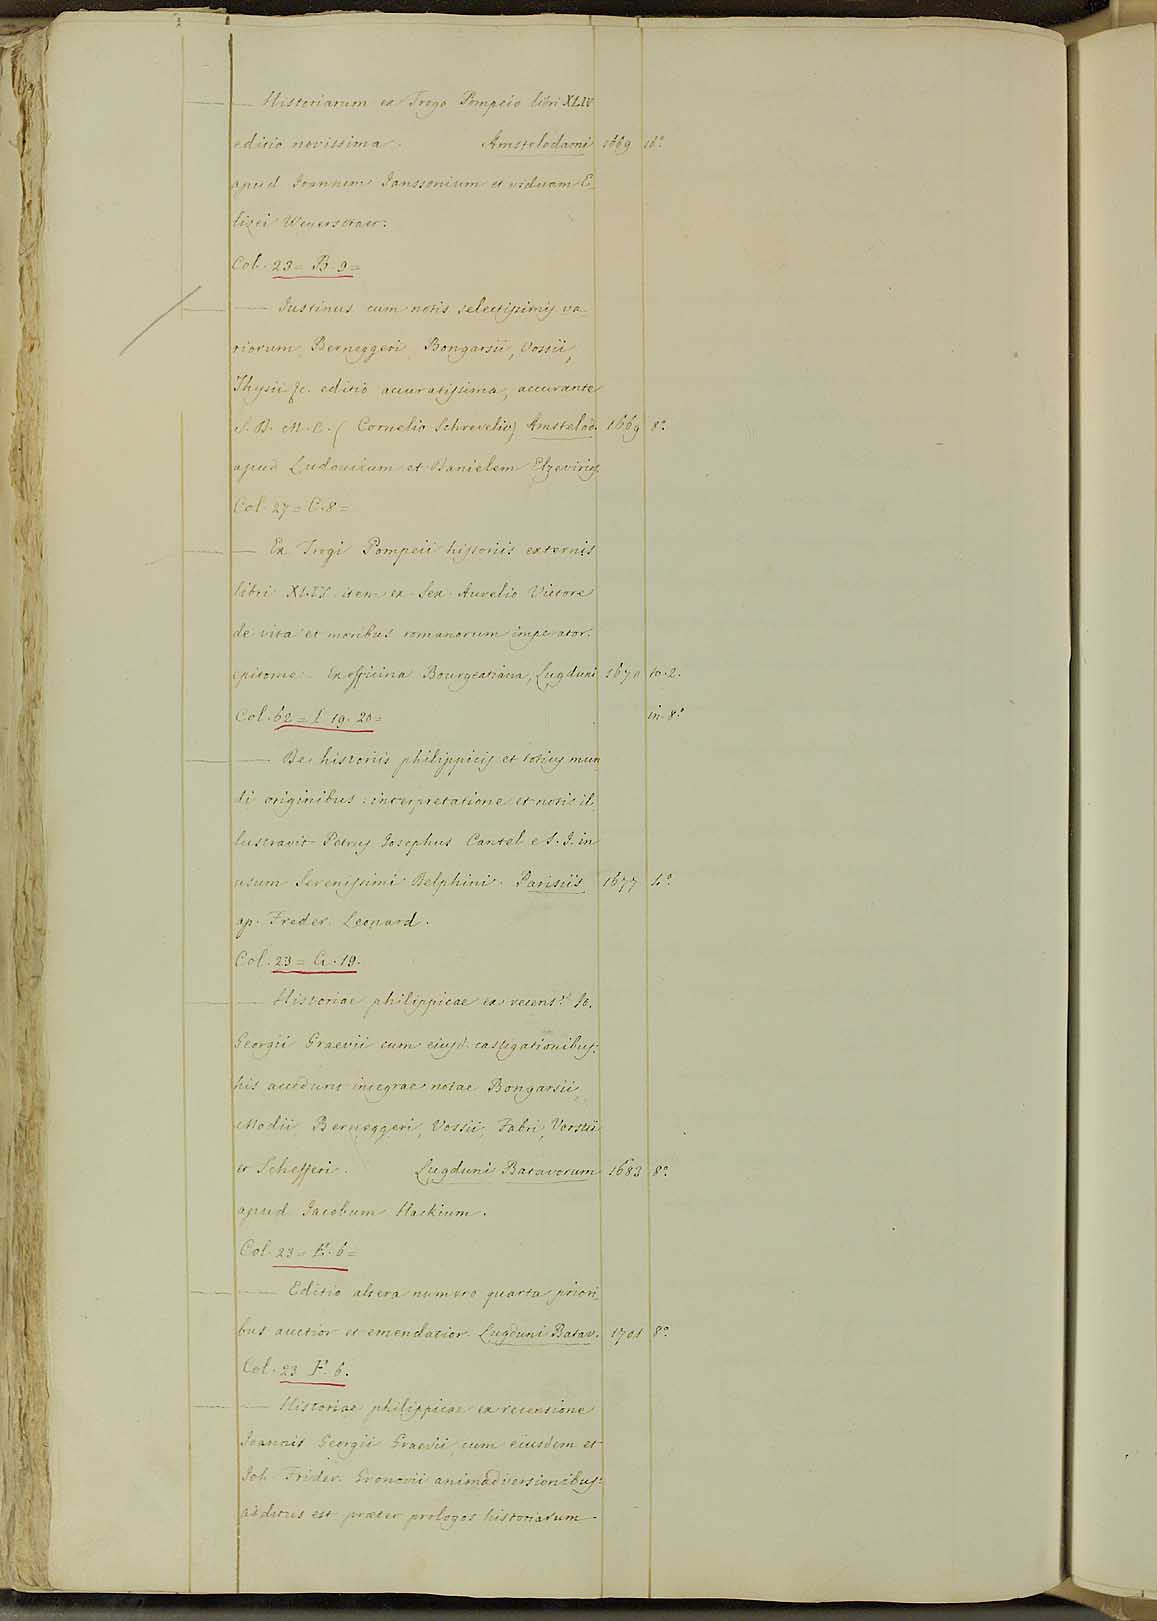 — — Historiarum ex Trogo Pompeio libri XLIV
editio novissima. Amstelodami 1669 16.°
apud Joannem Janssonium et viduam E-
lizei Weyerstraet.
Col. 23 = B. 9 =
— — Justinus cum notis selectissimis va-
riorum, Berneggeri, Bongarsii, Vossii,
Thysii &c. editio accuratissima, accurante
S. D. M. C. (Cornelio Schrevelio) Amstelod. 1669 8.°
apud Ludovicum et Danielem Elzevirios
Col. 27 = C. 8 =
— — Ex Trogi Pompeii historiis externis
libri XLIV item ex Sex. Aurelio Victore
de vita et moribus romanorum imperator.
epitome. Ex officina Bourgeatiana, Lugduni 1670 to. 2.
Col. 62 = I 19. 20 = in 8.°
— — De historiis philippicis et totius mun
di originibus: interpretatione et notis il-
lustravit Petrus Josephus Cantel e S. J. in
usum Serenissimi Delphini. Parisiis 1677 4.°
ap. Freder. Leonard.
Col. 23 = G. 19.
— — Historiae philippicae ex recens.e Jo.
Georgii Graevii cum eiusd. castigationibus:
his accedunt integrae notae Bongarsii,
Modii, Berneggeri, Vossii, Fabri, Vorstii
et Schefferi. Lugduni Batavorum 1683 8.°
apud Jacobum Hackium.
Col. 23 = F. 6 =
— — Editio altera numero quarta priori-
bus auctior et emendatior. Lugduni Batav. 1701 8.°
Col. 23 F. 6.
— — Historiae philippicae ex recensione
Joannis Georgii Graevii, cum eiusdem et
Joh. Frider. Gronovii animadversionibus:
additus est praeter prologos historiarum